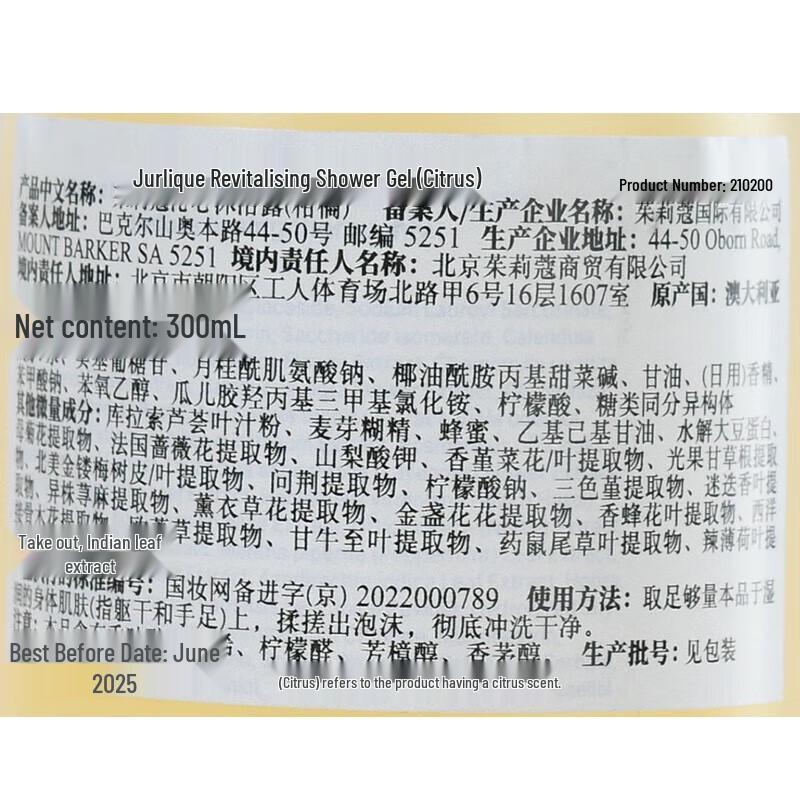 Jurlique Revitalising Shower Gel (Citrus)
Product Number: 210200
产品中文名称：
备案人/生产企业名称：茱莉蔻国际有限公司
备案人地址：巴克尔山奥本路44-50号 邮编 5251 生产企业地址：44-50 Oborn Road,
MOUNT BARKER SA 5251 境内责任人名称：北京茱莉蔻商贸有限公司
境内责任人地址：北京市朝阳区工人体育场北路甲6号16层1607室 原产国：澳大利亚
Net content: 300mL
葡糖苷、月桂酰肌氨酸钠、椰油酰胺丙基甜菜碱、甘油、(日用)香精、
苯甲酸钠、苯氧乙醇、瓜儿胶羟丙基三甲基氯化铵、柠檬酸、糖类同分异构体
其他微量成分：库拉索芦荟叶汁粉、麦芽糊精、蜂蜜、乙基己基甘油、水解大豆蛋白、
母菊花提取物、法国蔷薇花提取物、山梨酸钾、香堇菜花/叶提取物、光果甘草根提取
物、北美金缕梅树皮/叶提取物、问荆提取物、柠檬酸钠、三色堇提取物、迷迭香叶提
取物、异株荨麻提取物、薰衣草花提取物、金盏花花提取物、香蜂花叶提取物、西洋
接骨木花提取物、草提取物、甘牛至叶提取物、药鼠尾草叶提取物、辣薄荷叶提
Take out, Indian leaf
extract
标准编号：国妆网备进字(京) 2022000789 使用方法：取足够量本品于湿
润的身体肌肤(指躯干和手足)上，揉搓出泡沫，彻底冲洗干净。
柠檬醛、芳樟醇、香茅醇 生产批号：见包装
Best Before Date: June
2025
(Citrus) refers to the product having a citrus scent.